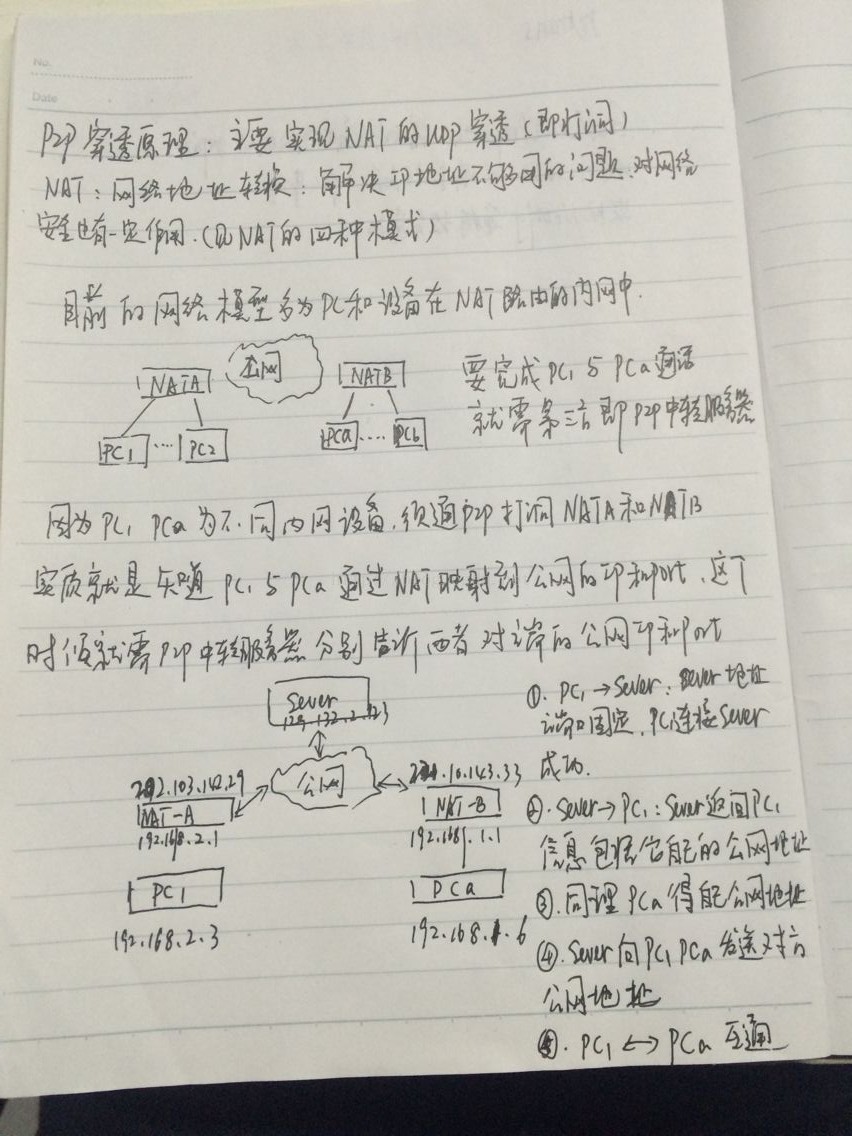 No.
Date
P2P穿透原理：主要实现NAT的UDP穿透（即打洞）
NAT：网络地址转换：解决IP地址不够用的问题.对网络
安全也有一定作用.（见NAT的四种模式）
目前的网络模型多为PC和设备在NAT路由的内网中.
NATA 公网 NATB
PC1 .... PC2 PCa .... PCb
要完成PC1与PCa通话
就需第三方即P2P中转服务器
因为PC1 PCa为不同内网设备.须通P2P打洞NATA和NATB
实质就是知道PC1与PCa通过NAT映射到公网的IP和port、这个
时候就需P2P中转服务器分别告诉两者对端的公网IP和port
Sever
公网
202.103.142.29
NAT-A
192.168.2.1
PC1
192.168.2.3
.10.143.33
NAT-B
192.168.1.1
PCa
192.168.1.6
①. PC1→Sever：Sever地址
端口固定、PC1连接Sever
成功.
②. Sever→PC1：Sever返回PC1
信息包括它自己的公网地址
③. 同理PCa得自己公网地址
④. Sever向PC1 PCa发送对方
公网地址
⑤. PC1 ↔ PCa 互通